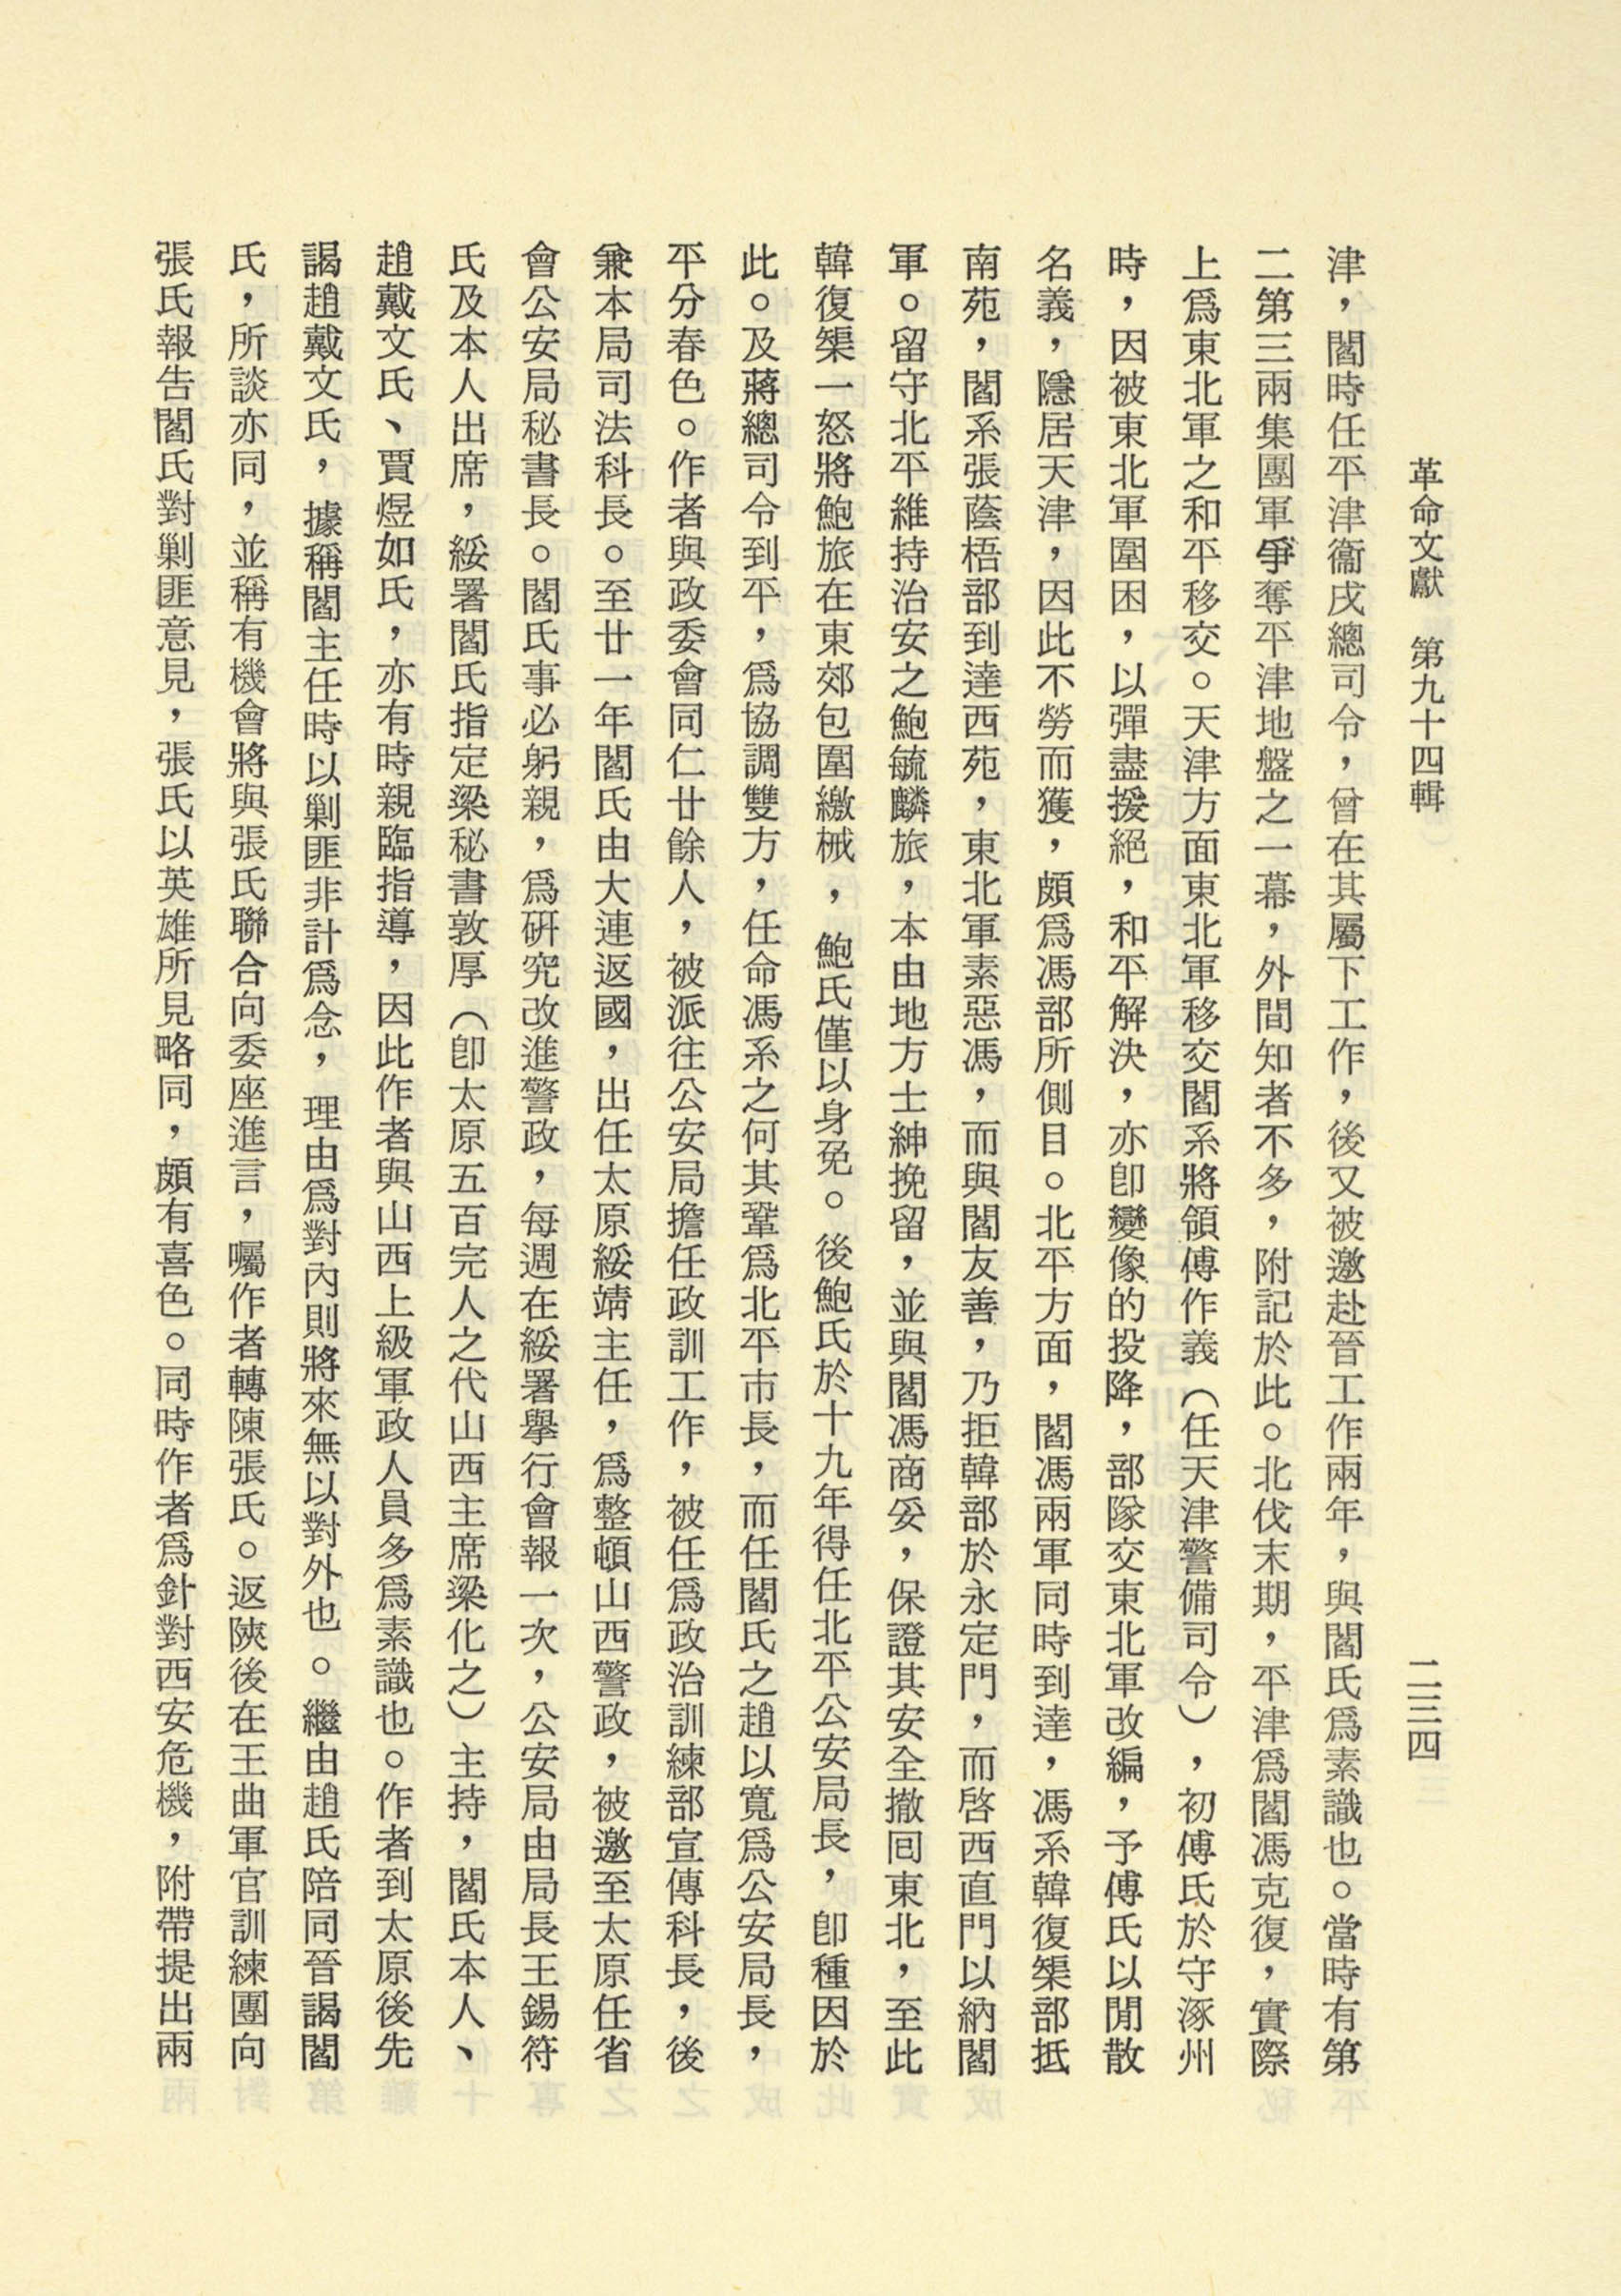 革命文獻　第九十四輯
二三四
津，閻時任平津衞戍總司令，曾在其屬下工作，後又被邀赴晉工作兩年，與閻氏爲素識也。當時有第
二第三兩集團軍爭奪平津地盤之一幕，外間知者不多，附記於此。北伐末期，平津爲閻馮克復，實際
上爲東北軍之和平移交。天津方面東北軍移交閻系將領傅作義（任天津警備司令），初傅氏於守涿州
時，因被東北軍圍困，以彈盡援絕，和平解決，亦卽變像的投降，部隊交東北軍改編，予傅氏以閒散
名義，隱居天津，因此不勞而獲，頗爲馮部所側目。北平方面，閻馮兩軍同時到達，馮系韓復榘部抵
南苑，閻系張蔭梧部到達西苑，東北軍素惡馮，而與閻友善，乃拒韓部於永定門，而啓西直門以納閻
軍。留守北平維持治安之鮑毓麟旅，本由地方士紳挽留，並與閻馮商妥，保證其安全撤囘東北，至此
韓復榘一怒將鮑旅在東郊包圍繳械，鮑氏僅以身免。後鮑氏於十九年得任北平公安局長，卽種因於
此。及蔣總司令到平，爲協調雙方，任命馮系之何其鞏爲北平市長，而任閻氏之趙以寬爲公安局長，
平分春色。作者與政委會同仁廿餘人，被派往公安局擔任政訓工作，被任爲政治訓練部宣傳科長，後
兼本局司法科長。至廿一年閻氏由大連返國，出任太原綏靖主任，爲整頓山西警政，被邀至太原任省
會公安局秘書長。閻氏事必躬親，爲研究改進警政，每週在綏署舉行會報一次，公安局由局長王錫符
氏及本人出席，綏署閻氏指定梁秘書敦厚（卽太原五百完人之代山西主席梁化之）主持，閻氏本人、
趙戴文氏、賈煜如氏，亦有時親臨指導，因此作者與山西上級軍政人員多爲素識也。作者到太原後先
謁趙戴文氏，據稱閻主任時以剿匪非計爲念，理由爲對內則將來無以對外也。繼由趙氏陪同晉謁閻
氏，所談亦同，並稱有機會將與張氏聯合向委座進言，囑作者轉陳張氏。返陝後在王曲軍官訓練團向
張氏報告閻氏對剿匪意見，張氏以英雄所見略同，頗有喜色。同時作者爲針對西安危機，附帶提出兩